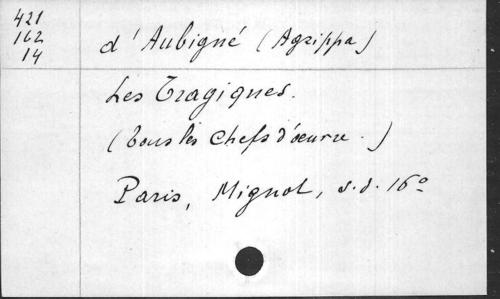 421
162
14
d'Aubigné (Agrippa)
Les Tragiques.
(Tous les Chefs d'oeuvre.)
Paris, Mignot, s.d. 16º